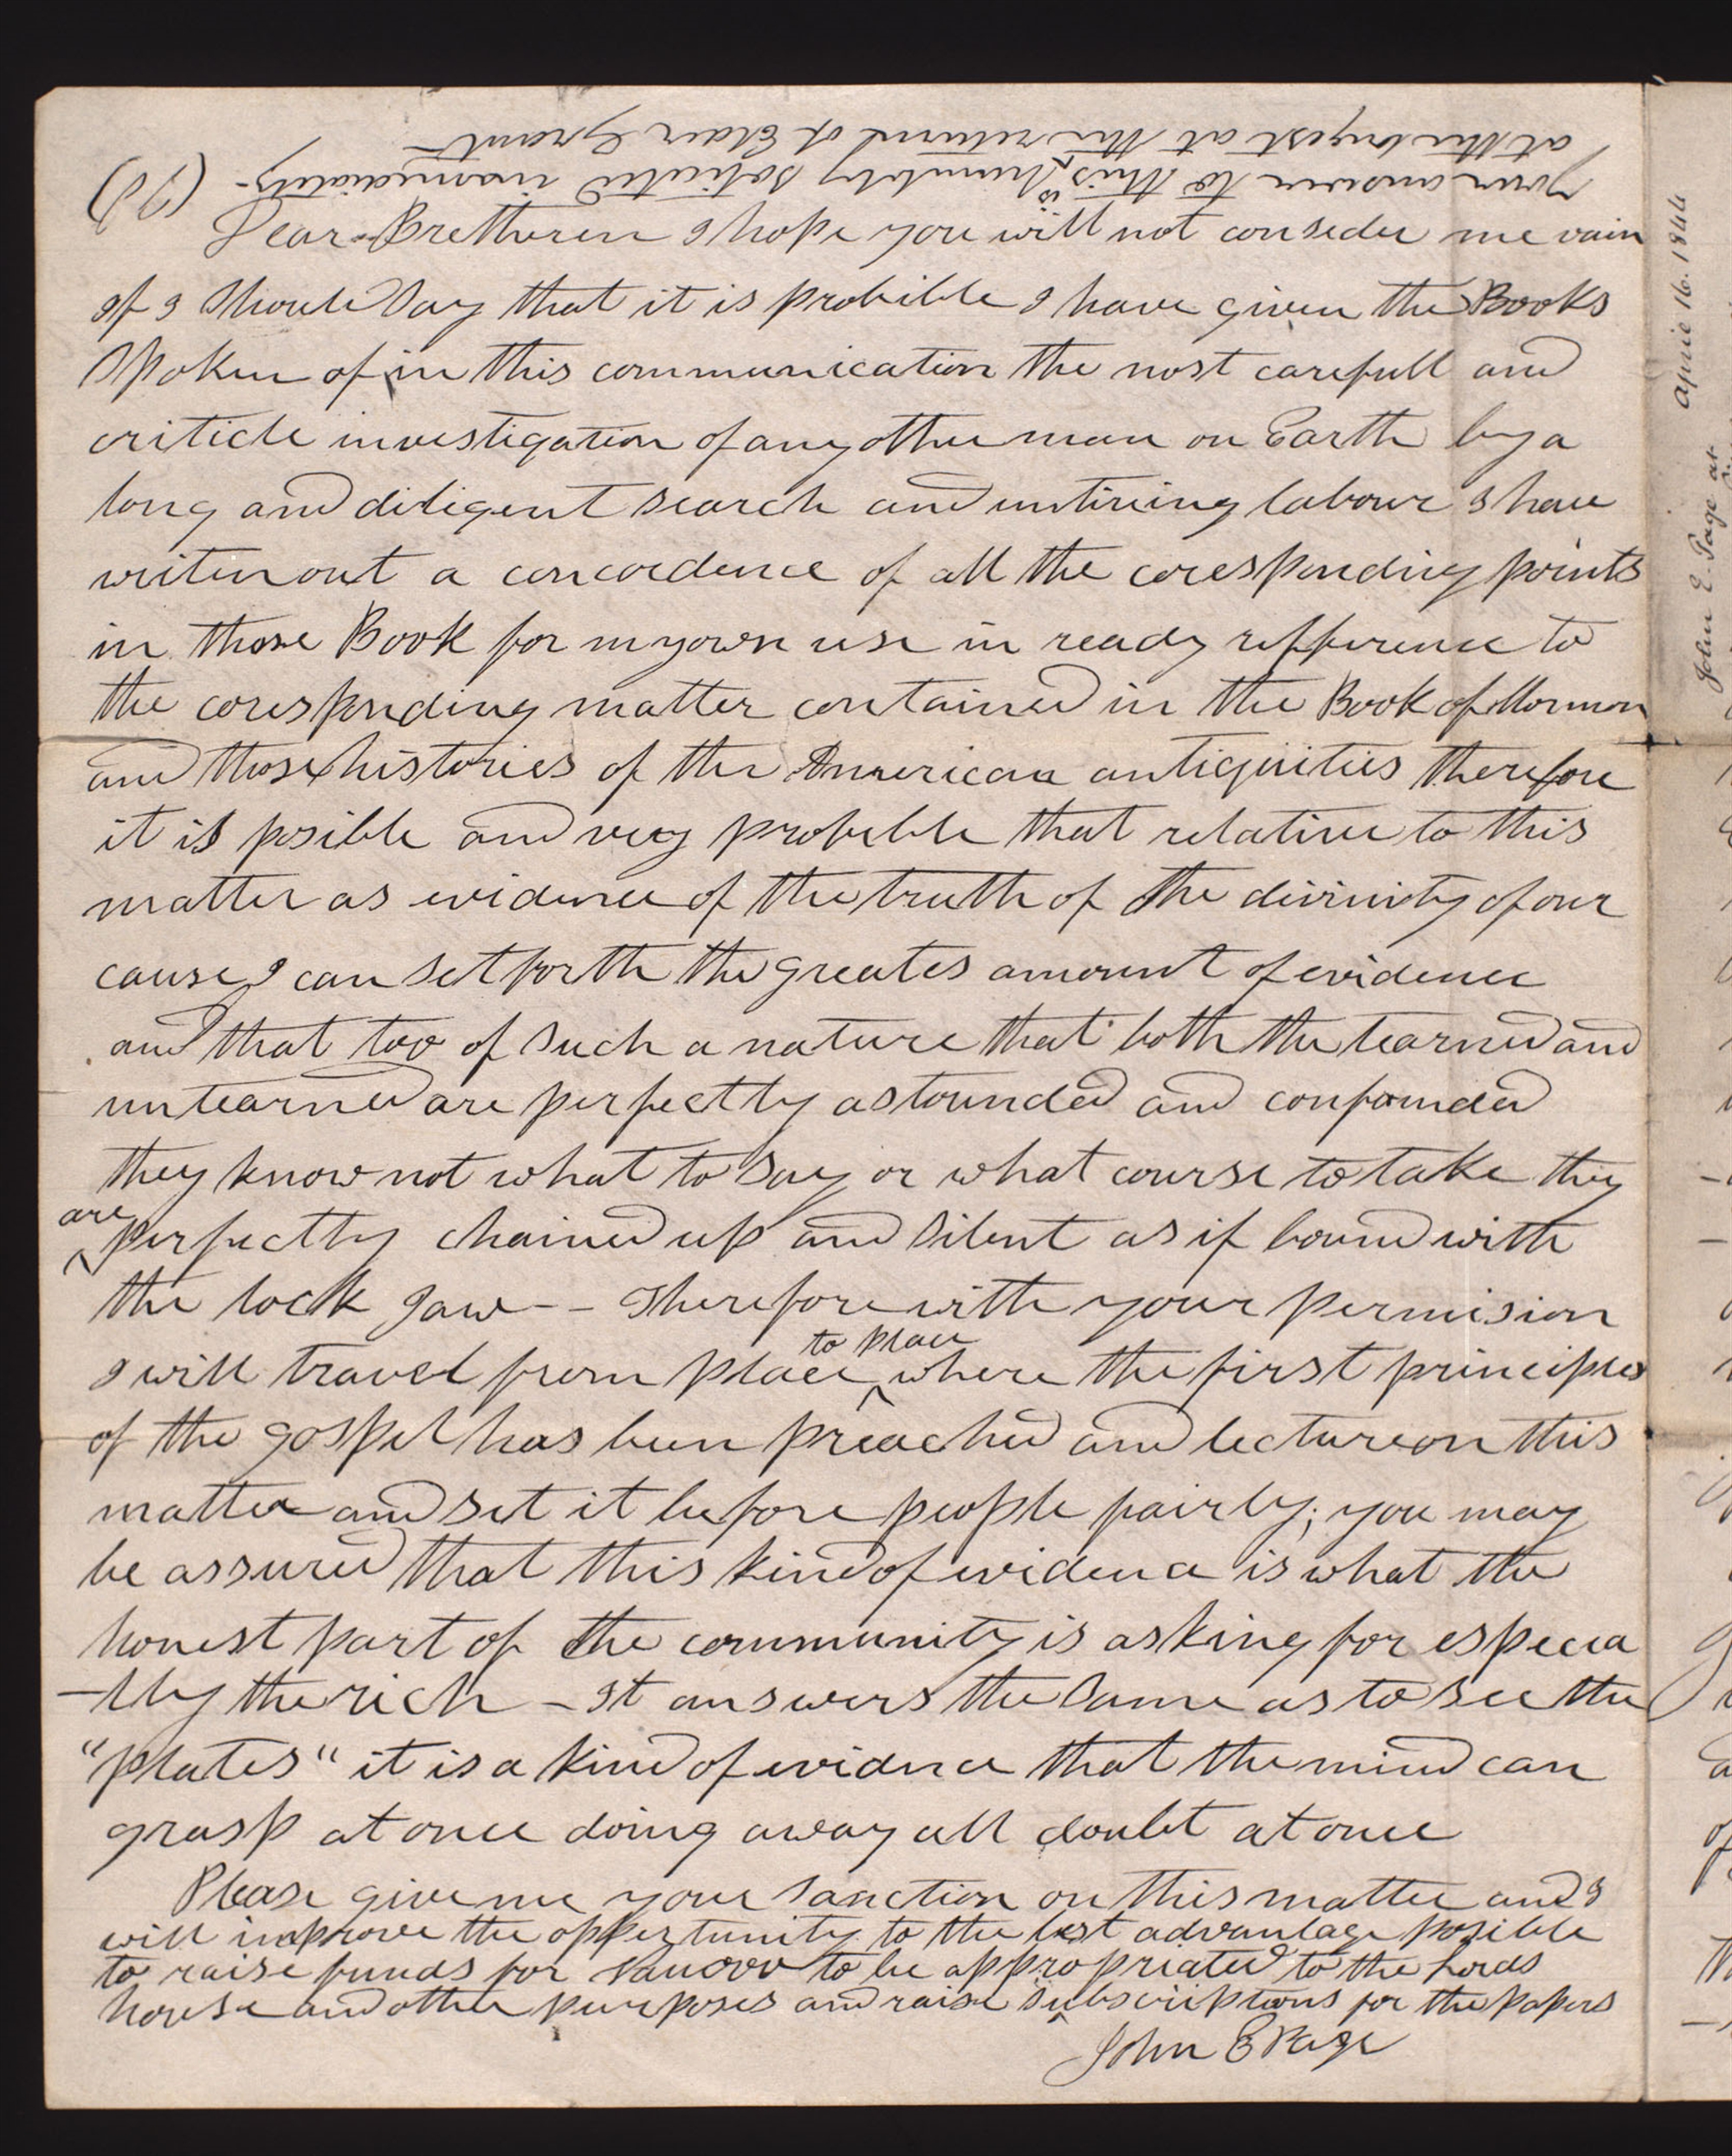 your answer to this is humbly solicited immediately -
at the longest at the return of Elder Grant
(2d)
Dear Bretheren I hope you will not conseder me vain
if I Should Say that it is probible I have given the Books
Spoken of in this communication the most carefull and
criticle investigation of any other man on Earth by a
long and diligent search and untiring labour I have
writen out a concordence of all the coresponding points
in those Book for my own use in ready refference to
the coresponding matter contained in the Book of Mormon
and those histories of the American antiquities therefore
it is posible and very probible that relative to this
matter as evidence of the truth of the divinity of our
cause I can set forth the greates amount of evidence
and that too of Such a nature that both the learned and
unlearned are perfectly astounded and confounded
they know not what to Say or what course to take they
are perfectly chained up and Silent as if bound with
the lock Jaw - - Therefore with your permision
I will travel from place to place where the first principles
of the gospel has been preached and lecture on this
matter and set it before people fairly; you may
be assured that this kind of evidence is what the
honest part of the community is asking for especia
-lly the rich - It answers the Same as to see the
"plates" it is a kind of evidnce that the mind can
grasp at once doing away all doubt at once
Please give me your Sanction on this matter and I
will improve the oppertunity to the best advantage posible
to raise funds for Nauvoo to be appropriated to the Lords
house and other purposes and raise subscriptions for the papers
John E Page
John E. Page at
April 16. 1844